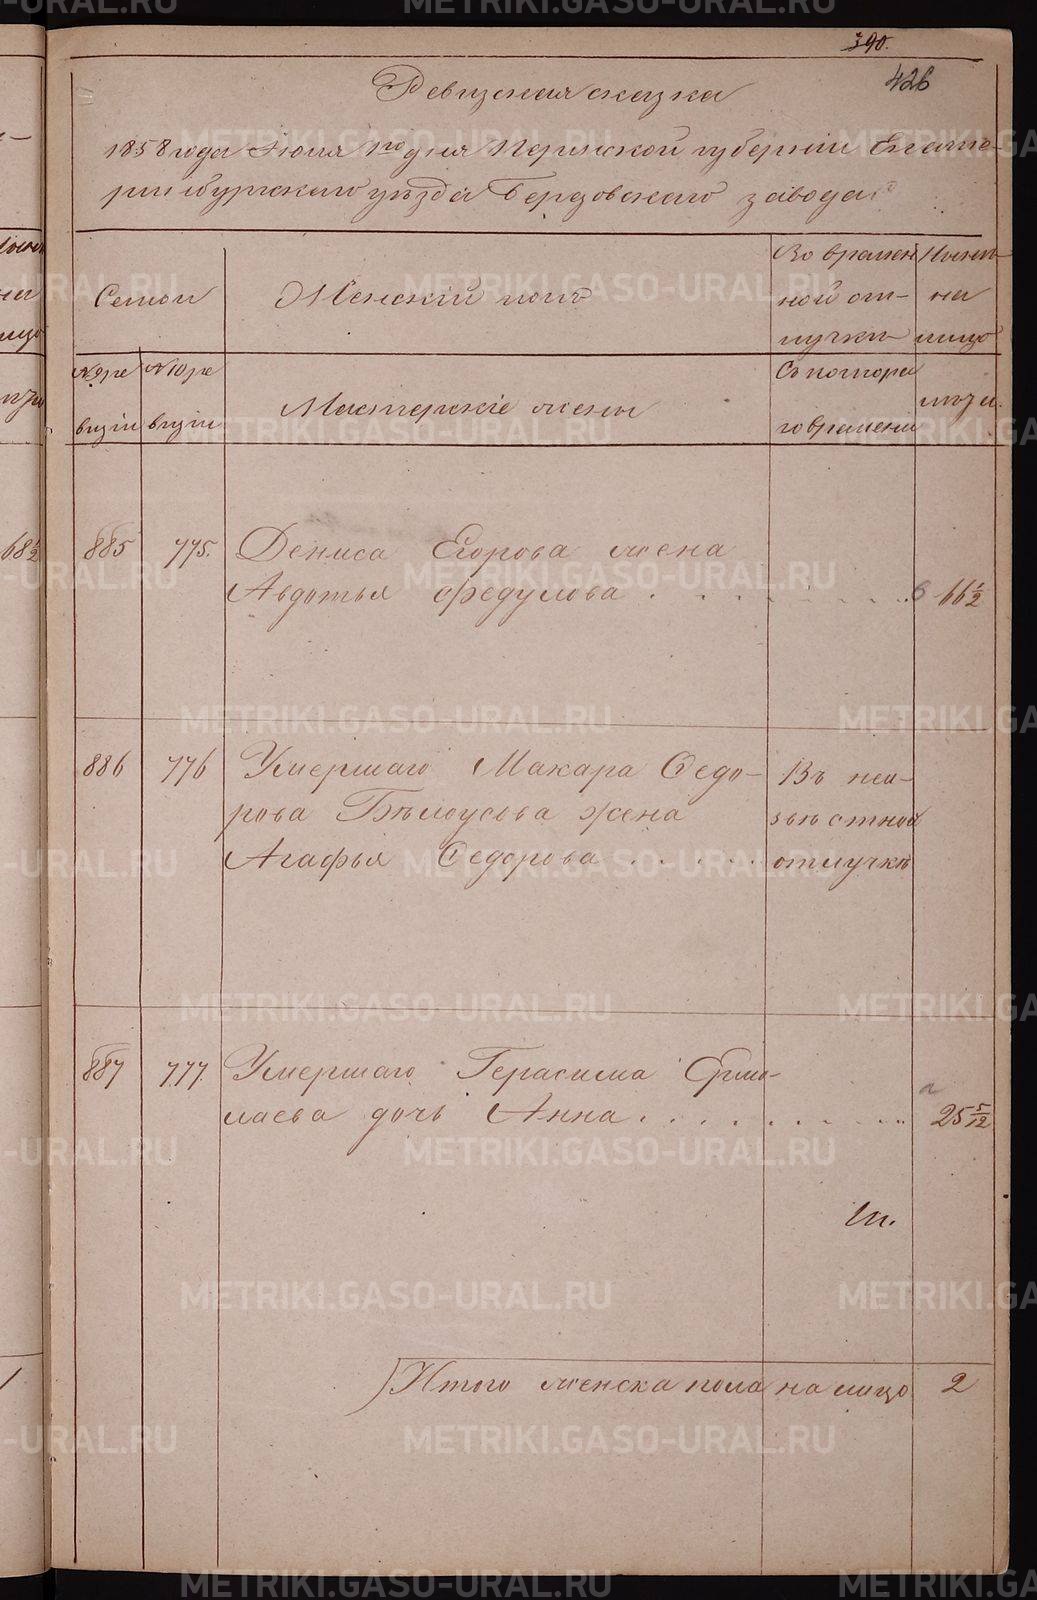 390.
426
Ревизская сказка
1858 года Июля 1го дня Пермской губернiи Екате-
ринбургскаго уѣзда Березовскаго завода
Семьи
Женскiй полъ
Во времен
ной от-
лучкѣ
Нынѣ
на
лицо
№ 9 ре
визiи
№ 10 ре
визiи
Мастерскiе жены
Съ котора
го времени
лѣта.
68½
885 775. Дениса Егорова жена
Авдотья Федулова . . . . . . . . 66½
886 776 Умершаго Макара Ѳедо-
рова Бѣлоусова жена
Агафья Ѳедорова . . . . . .
Въ неи-
звѣстной
отлучкѣ
887 777. Умершаго Герасима Ермо-
лаева дочь Анна . . . . . . . . . 25 5/12
Итого женска пола на лицо 2
METRIKI.GASO-URAL.RU